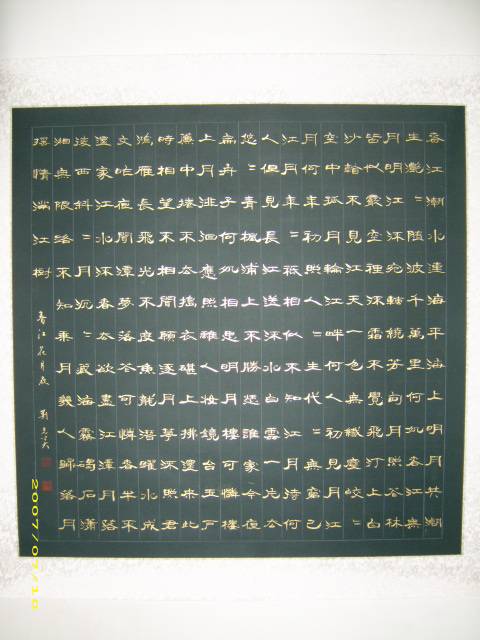 春江潮水連海平海上明月共潮
生灧=隨波千萬里何處春江無
月明江流宛轉繞芳甸月照花林
皆似霰空裡流霜不覺飛汀上白
沙看不見江天一色無纖塵皎=
空中孤月輪江畔何人初見月江
月何年初照人=生代=無窮已
江月年=祇相似不知江月待何
人但見長江送流水白雲一片去
悠=青楓浦上不勝愁誰家今夜
扁舟子何處相思明月樓可憐樓
上月徘徊應照離人妝鏡台玉戶
簾中捲不去擣衣砧上拂還來此
時相望不相聞願逐月華流照君
鴻雁長飛光不度魚龍潛躍水成
文昨夜閒潭夢落花可憐春半不
還家江水流春去欲盡江潭月落
復西斜=月沉=藏海霧碣石瀟
湘無限路不知乘月幾人歸落月
搖情滿江樹 春江花月夜 劉
2007/07/10